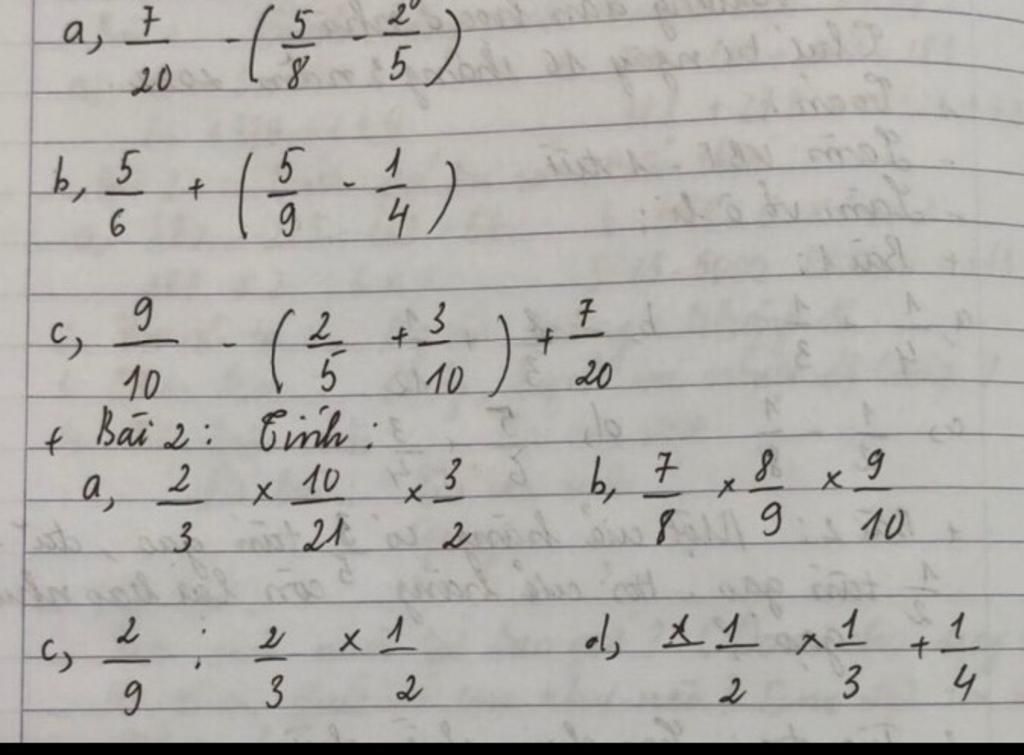 a, 7/20 - (5/8 - 2/5)
b, 5/6 + (5/9 - 1/4)
c, 9/10 - (2/5 + 3/10) + 7/20
+ Bài 2: Tính:
a, 2/3 × 10/21 × 3/2 b, 7/8 × 8/9 × 9/10
c, 2/9 : 2/3 × 1/2 d, 1/2 × 1/3 + 1/4